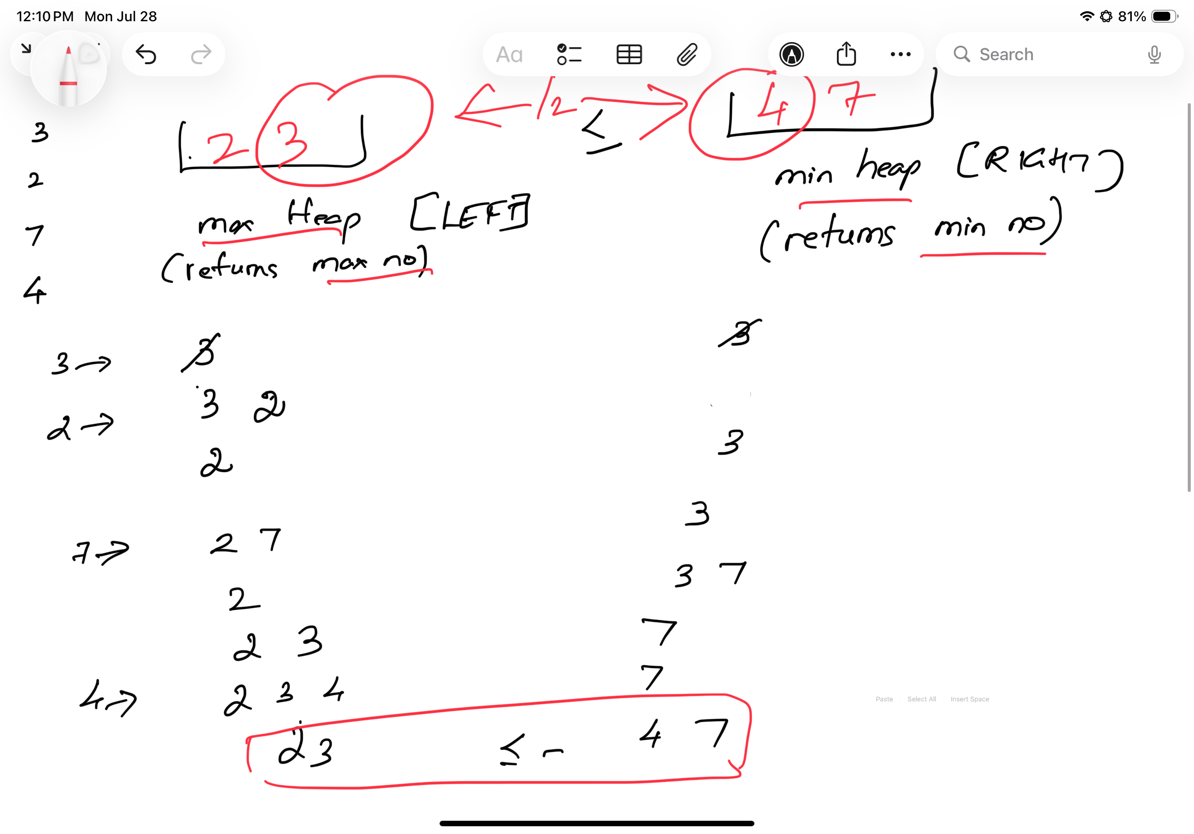 12:10 PM Mon Jul 28 81%
Aa Search
2 3 /2 ≤ 4 7
3
2
7
4
max Heap [LEFT]
(returns max no)
min heap [RIGHT]
(returns min no)
3 → 3 3
2 → 3 2
2 3
3
7 → 2 7
3 7
2
2 3 7
4 → 2 3 4 7
2 3 ≤ - 4 7
Paste Select All Insert Space